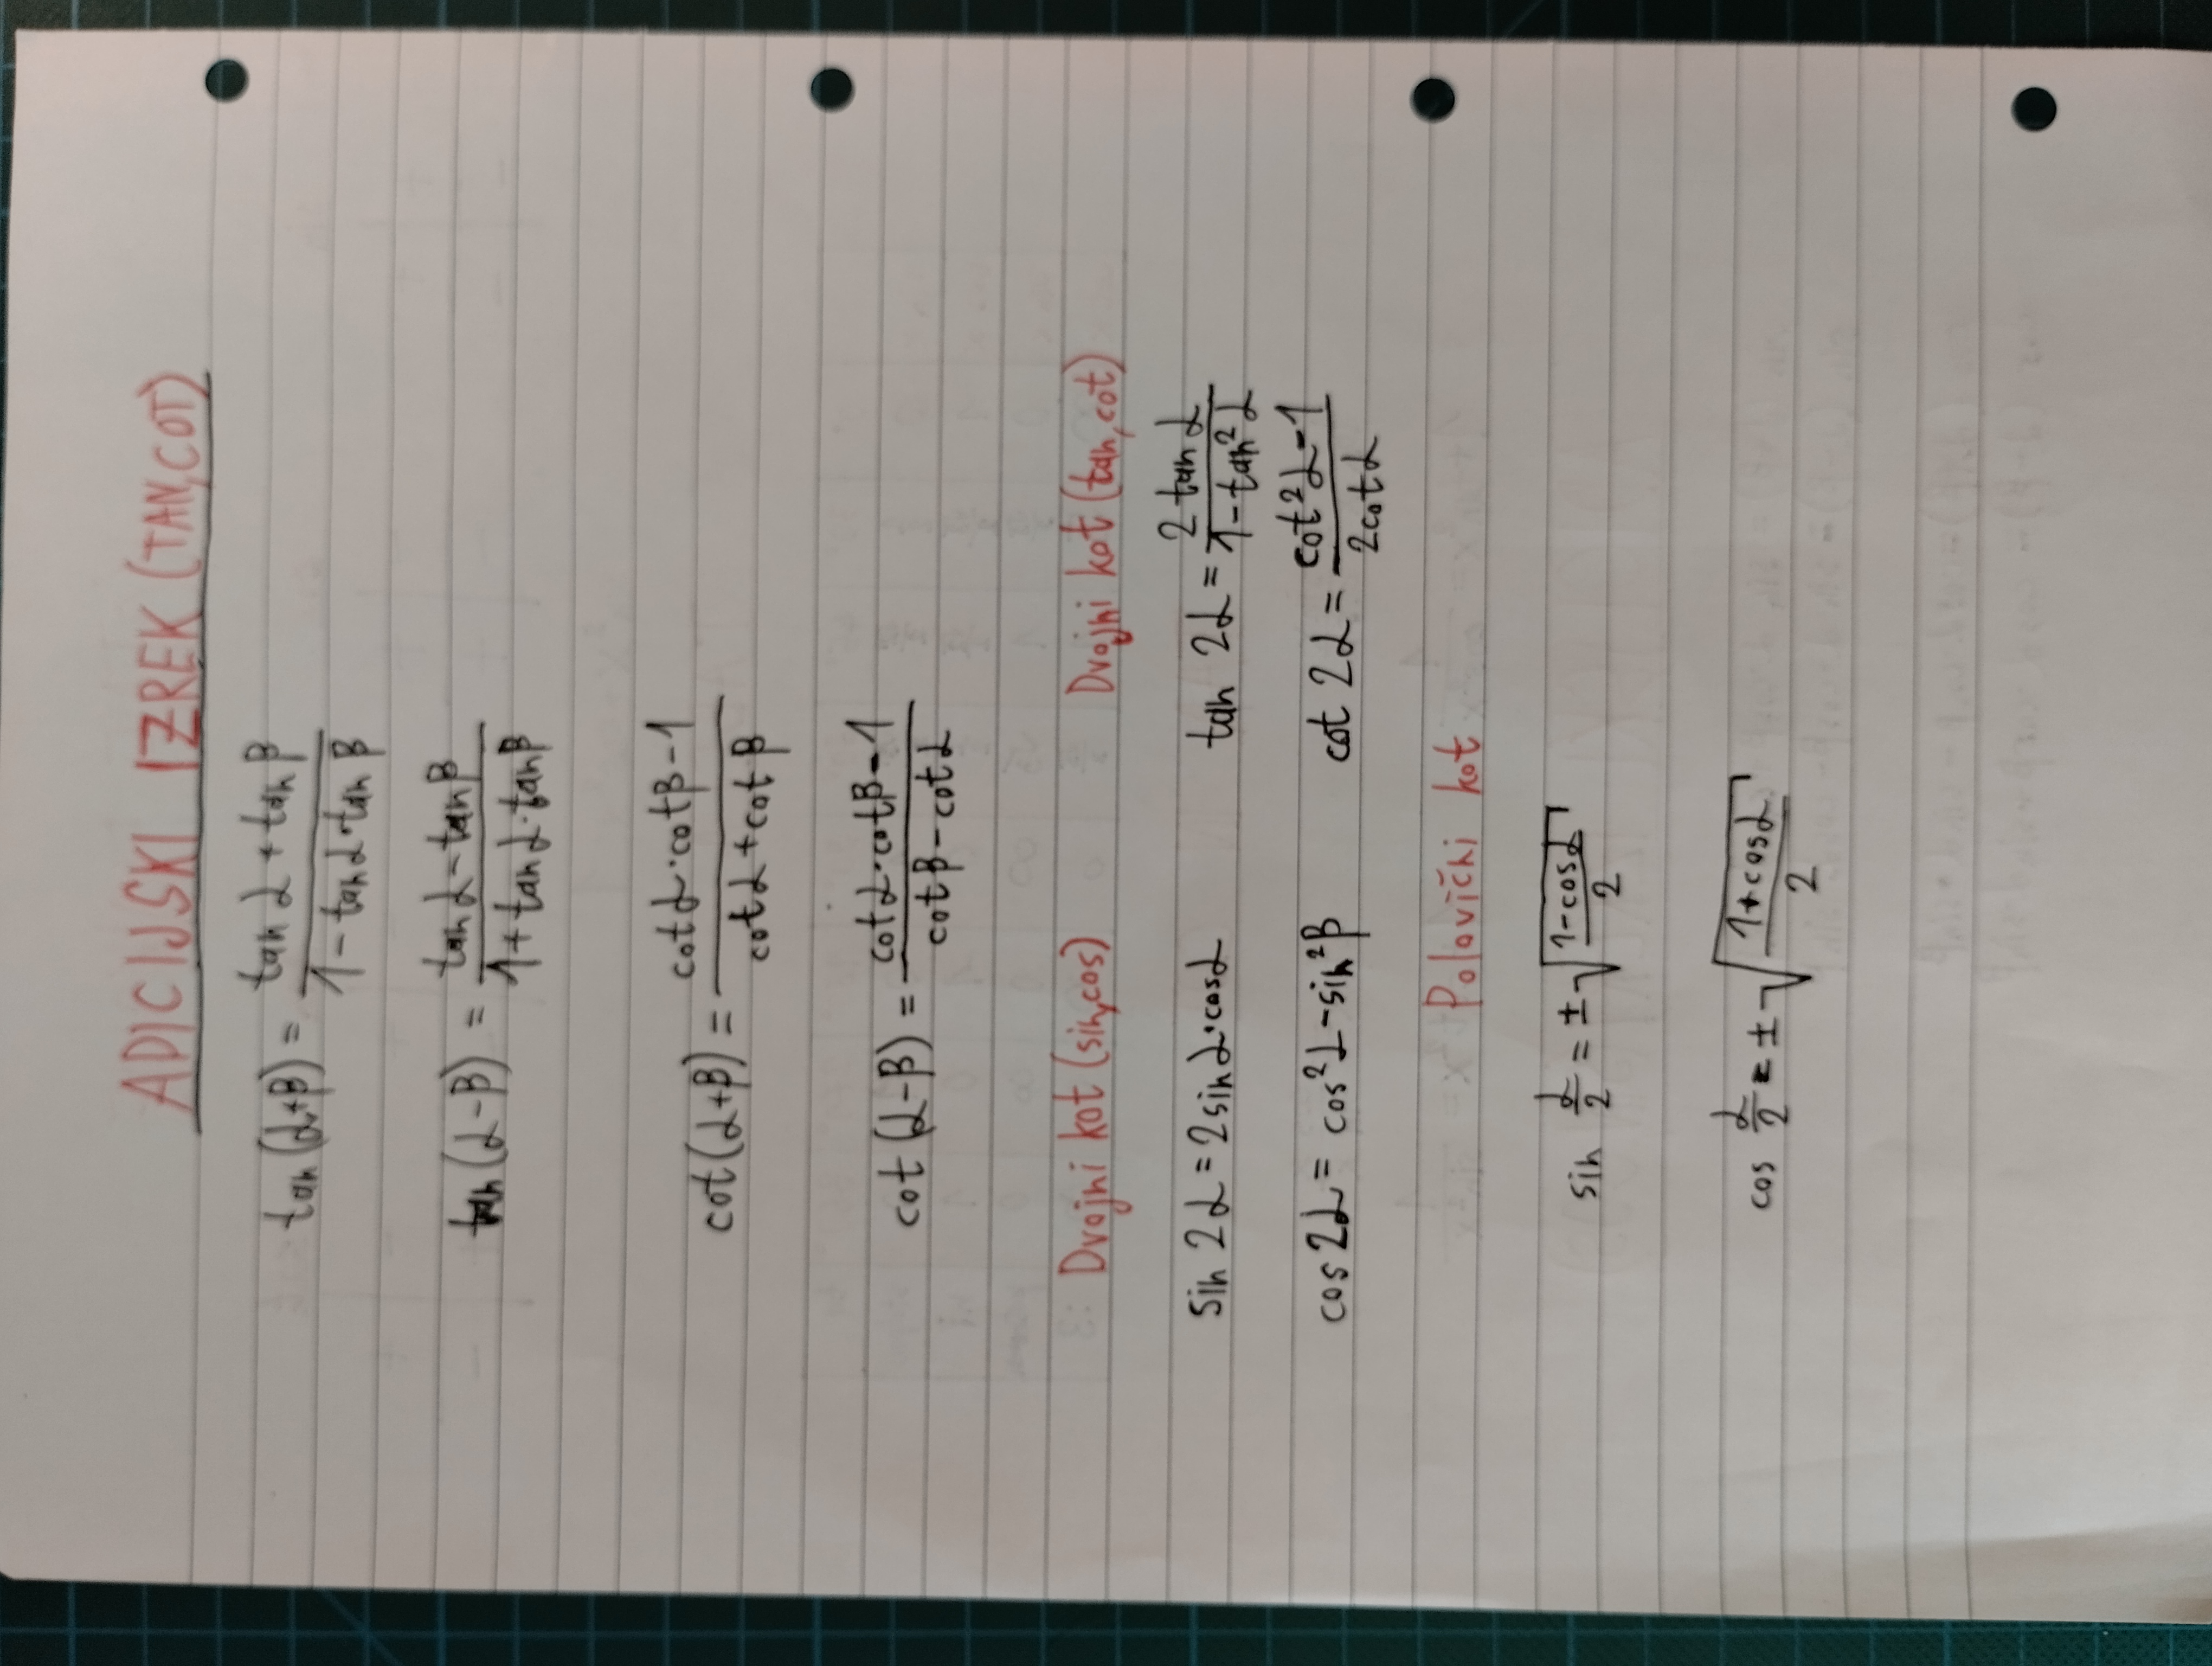 ADICIJSKI IZREK (TAN,COT)
tan (α+β) = (tan α + tan β) / (1 - tan α · tan β)
tan (α-β) = (tan α - tan β) / (1 + tan α · tan β)
cot (α+β) = (cot α · cot β - 1) / (cot α + cot β)
cot (α-β) = (cot α · cot β - 1) / (cot β - cot α)
Dvojni kot (sin,cos)
sin 2α = 2 sin α · cos α
cos 2α = cos²α - sin²β
Dvojni kot (tan,cot)
tan 2α = (2 tan α) / (1 - tan² α)
cot 2α = (cot² α - 1) / (2 cot α)
Polovični kot
sin α/2 = ± √((1 - cos α) / 2)
cos α/2 = ± √((1 + cos α) / 2)